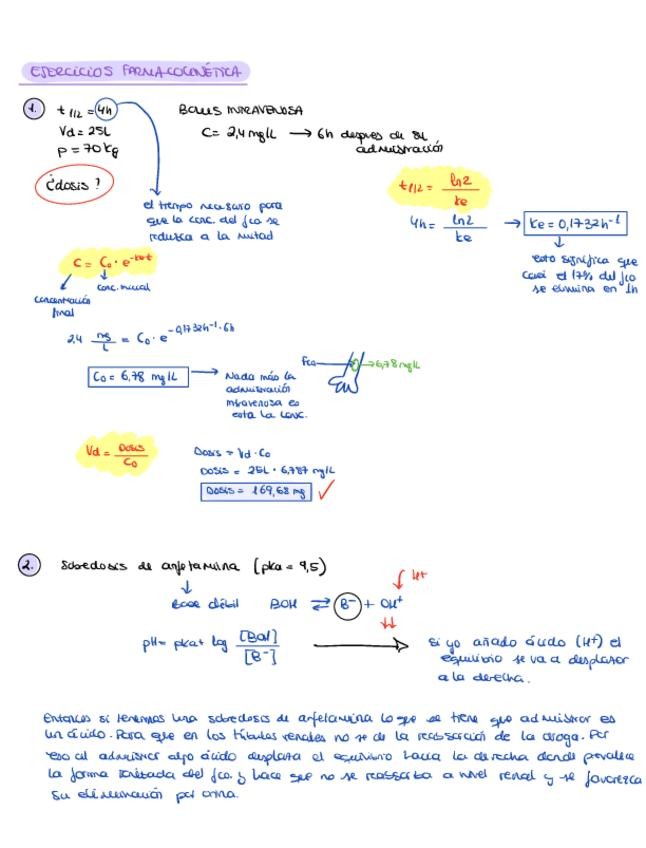 EJERCICIOS FARMACOCINÉTICA
1. t 1/2 = 4h
Vd = 25L
P = 70kg
¿dosis?
BOLUS INTRAVENOSA
C = 2,4 mg/L → 6h después de su
administración
el tiempo necesario para
que la conc. del fco se
reduzca a la mitad
t 1/2 = ln2 / ke
4h = ln2 / ke → ke = 0,1732h⁻¹
esto significa que
casi el 17% del fco
se elimina en 1h
C = C₀ · e^-ke·t
concentración
final
conc. inicial
2,4 mg/L = C₀ · e^-0,1732h⁻¹·6h
C₀ = 6,78 mg/L → Nada más la
administración
intravenosa es
esta la conc.
Fco → 6,78 mg/L
Vd = Dosis / C₀
Dosis = Vd · C₀
Dosis = 25L · 6,787 mg/L
Dosis = 169,68 mg ✓
2. Sobredosis de anfetamina (pka = 9,5)
↓ H+
Base débil BOH ⇌ B⁻ + OH⁺
pH = pka + log [BOH] / [B⁻] → Si yo añado ácido (H+) el
equilibrio se va a desplazar
a la derecha.
Entonces si tenemos una sobredosis de anfetamina lo que se tiene que administrar es
un ácido. Para que en los túbulos renales no se de la reabsorción de la droga. Por
eso al administrar algo ácido desplaza el equilibrio hacia la derecha donde prevalece
la forma ionizada del fco. y hace que no se reabsorba a nivel renal y se favorezca
su eliminación por orina.